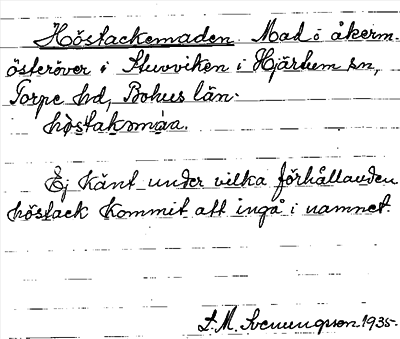 Höstackemaden. Mad i åkerm.
österöver i Stuvviken i Hjärtum sn,
Torpe hd, Bohus län.
hòstakomàa.
Ej känt under vilka förhållanden
höstack kommit att ingå i namnet.
S.M. Svenungson 1935.